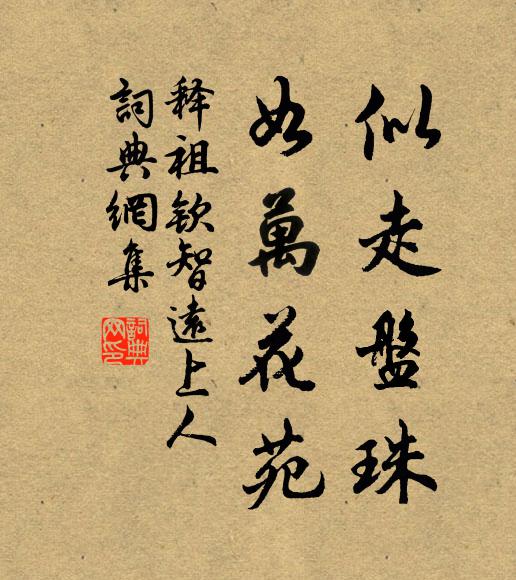 似走盤珠
如萬花苑
释祖钦智遠上人
詞典網集
詞典網印